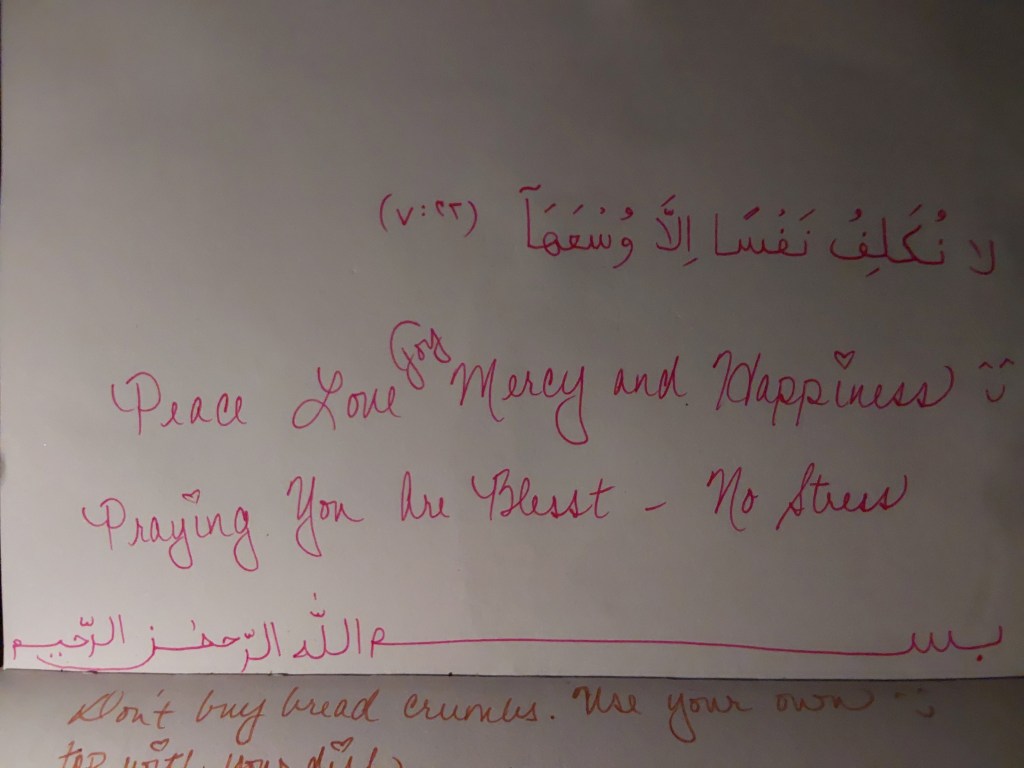 لا نُكَلِفُ نَفْسًا اِلَّا وُسْعَهَآ (٧:٤٢)
Peace Love Joy Mercy and Happiness
Praying You Are Blesst - No Stress
بســـــم اللّٰه الرّحمٰن الرّحيم
Don't buy bread crumbs. Use your own
top with your